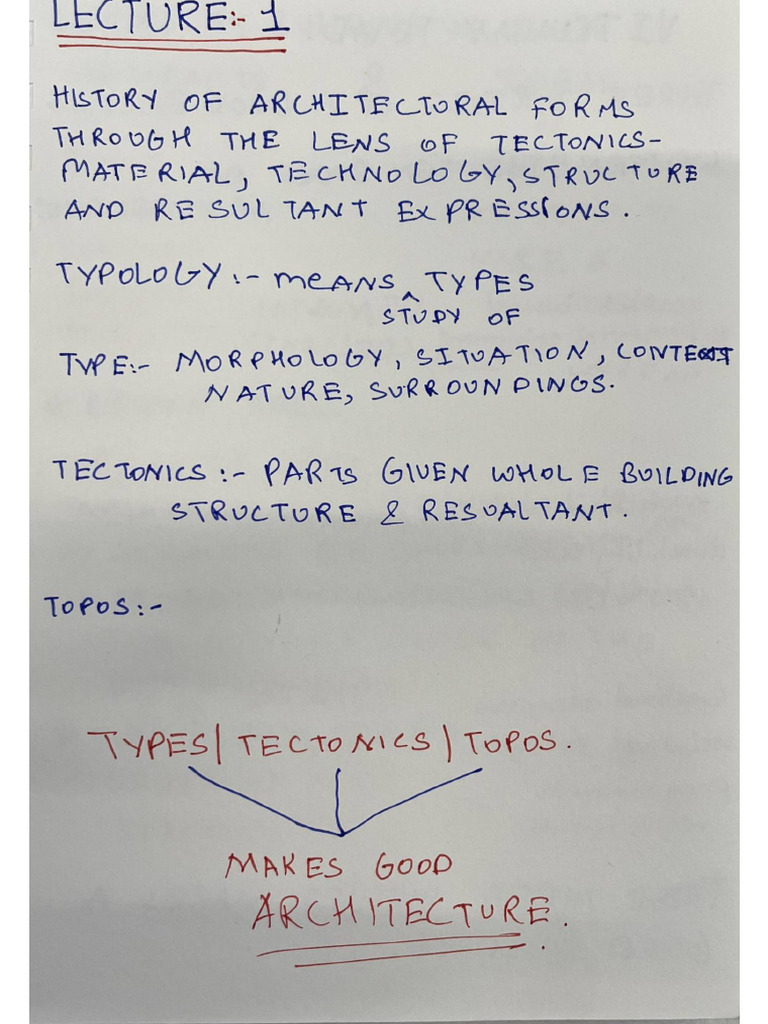 LECTURE:- 1
HISTORY OF ARCHITECTURAL FORMS
THROUGH THE LENS OF TECTONICS-
MATERIAL, TECHNOLOGY, STRUCTURE
AND RESULTANT EXPRESSIONS.
TYPOLOGY:- MEANS ^ TYPES
STUDY OF
TYPE:- MORPHOLOGY, SITUATION, CONTEXT
NATURE, SURROUNDINGS.
TECTONICS:- PARTS GIVEN WHOLE BUILDING
STRUCTURE & RESUALTANT.
TOPOS:-
TYPES | TECTONICS | TOPOS.
MAKES GOOD
ARCHITECTURE.